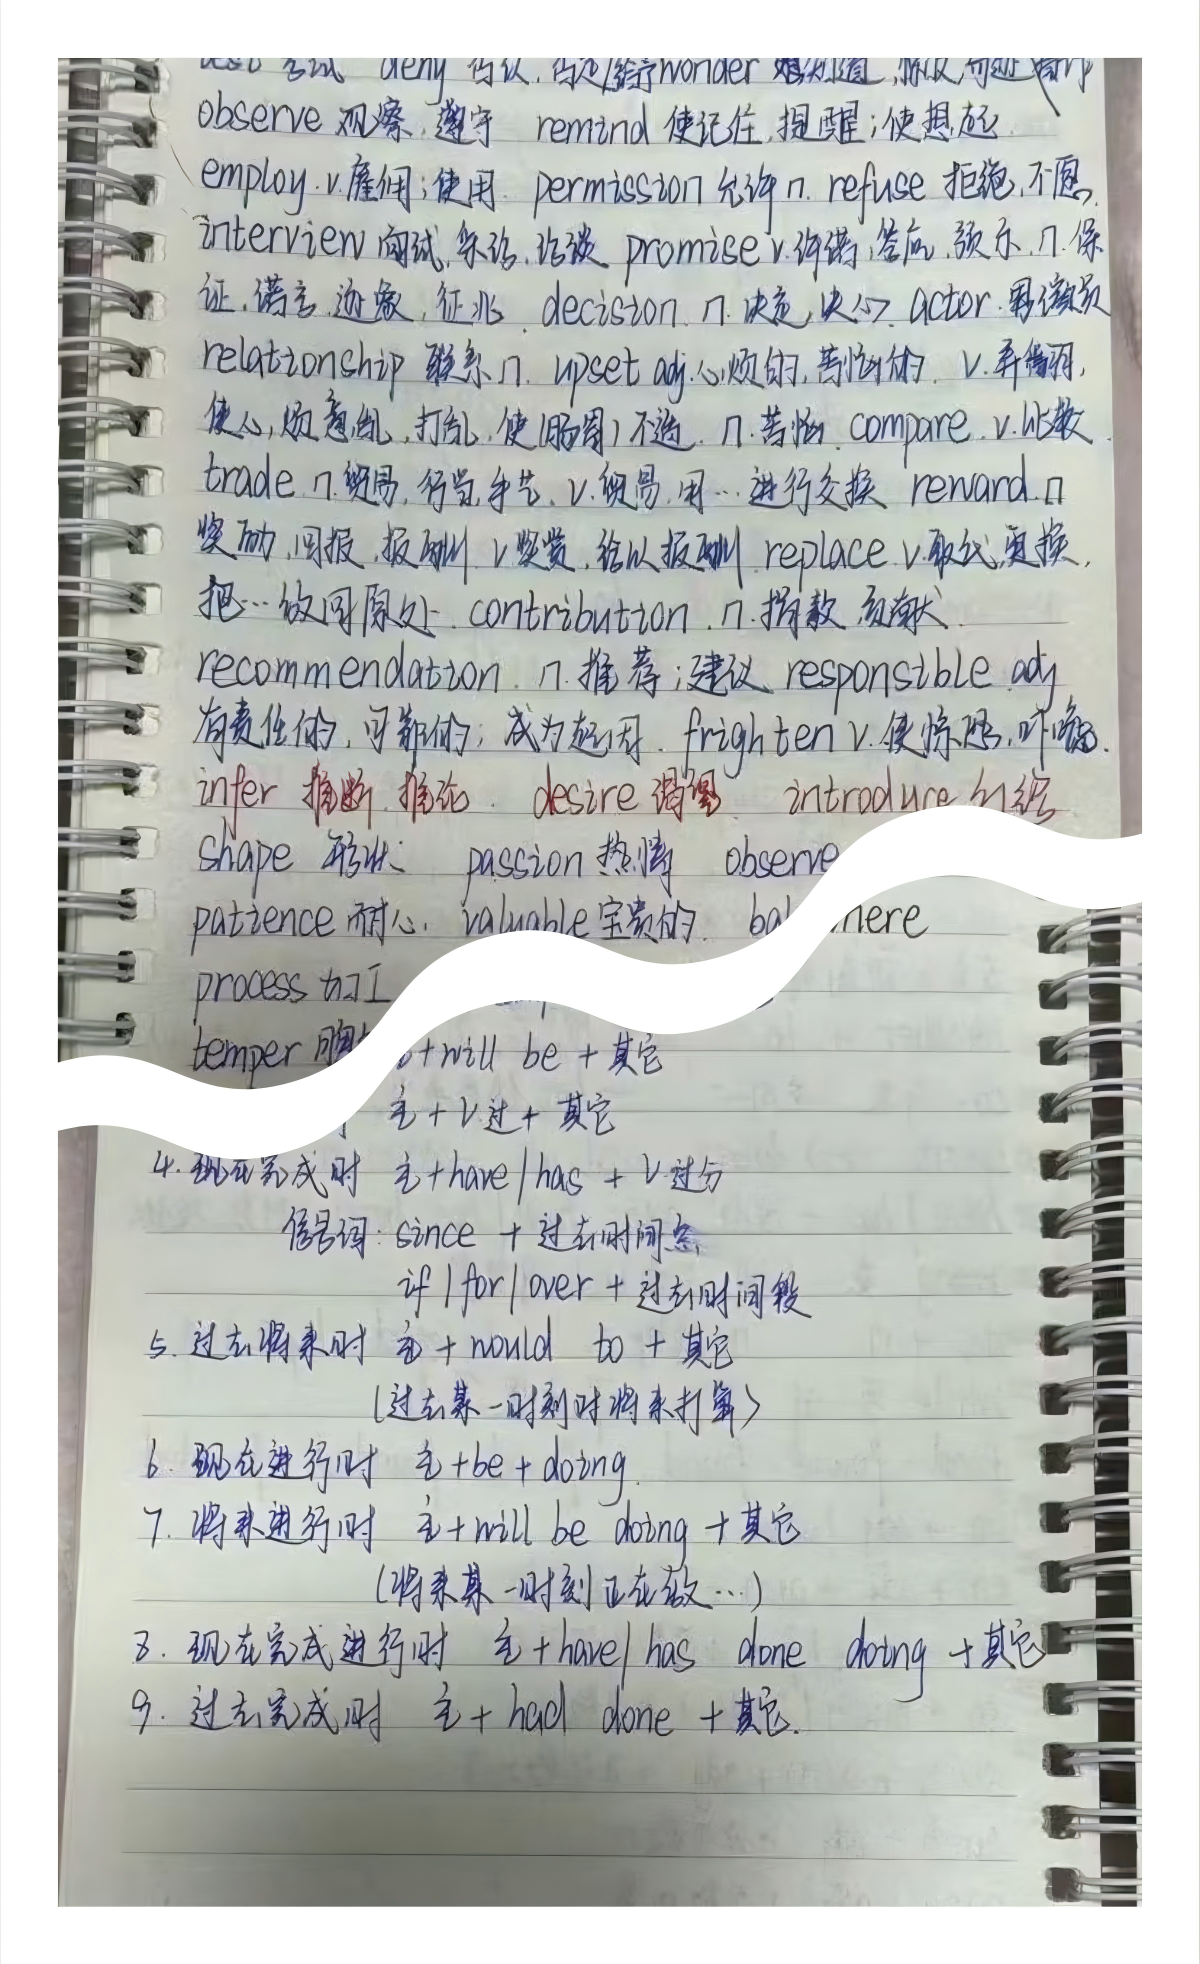 test 考试 deny 否认, wonder
observe 观察, 遵守 remind 使记住, 提醒; 使想起
employ. v. 雇佣; 使用. permission 允许 n. refuse 拒绝, 不愿.
interview 面试, 采访, 访谈 promise v. 许诺, 答应, 预示. n. 保
证, 诺言, 迹象, 征兆. decision. n. 决定, 决心. actor. 男演员
relationship 联系 n. upset adj. 心烦的, 苦恼的. v. 弄翻,
使心烦意乱, 打乱, 使(肠胃)不适. n. 苦恼 compare. v. 比较.
trade n. 贸易, 行当, 手艺. v. 贸易. 用…进行交换 reward. n
奖励, 回报, 报酬 v 奖赏, 给以报酬 replace v. 取代, 更换,
把…放回原处. contribution. n. 捐款, 贡献
recommendation. n. 推荐; 建议. responsible adj
有责任的, 可靠的; 成为起因. frighten v. 使惊恐, 吓唬.
infer 推断, 推论. desire 渴望 introduce 介绍
shape 形状 passion 热情 observe
patience 耐心. valuable 宝贵的. here
process 加工
temper
+will be + 其它
主 + v.过 + 其它
4. 现在完成时 主+have/has + v.过分
信号词: since + 过去时间点
if/for/over + 过去时间段
5. 过去将来时 主 + would to + 其它
(过去某一时刻对将来打算)
6. 现在进行时 主+be+doing.
7. 将来进行时 主+will be doing + 其它
(将来某一时刻正在做…)
8. 现在完成进行时 主+have/has done doing + 其它
9. 过去完成时 主+ had done + 其它.